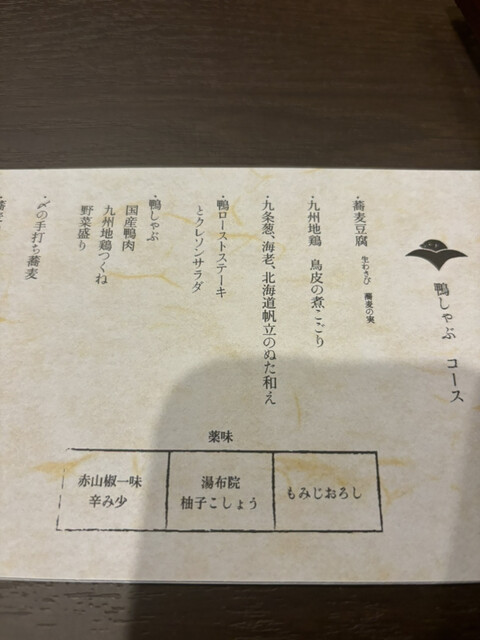 鴨しゃぶ コース
・蕎麦豆腐 生わさび 蕎麦の実
・九州地鶏 鳥皮の煮こごり
・九条葱、海老、北海道帆立のぬた和え
・鴨ローストステーキ
とクレソンサラダ
・鴨しゃぶ
国産鴨肉
九州地鶏つくね
野菜盛り
・〆の手打ち蕎麦
薬味
もみじおろし
湯布院
柚子こしょう
赤山椒一味
辛み少